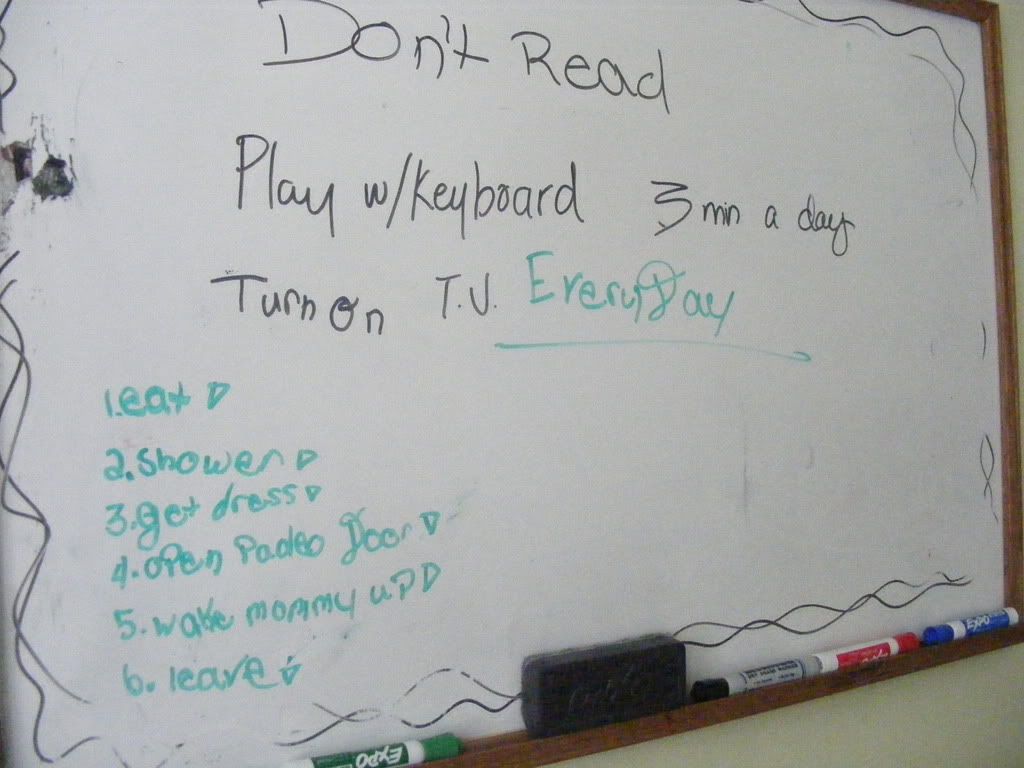 Don't Read
Play w/Keyboard 3 min a day
Turn on T.V. EveryDay
1.eat
2.shower
3.get dress
4.open Padeo Door
5.wake mommy up
6.leave
EXPO
EXPO